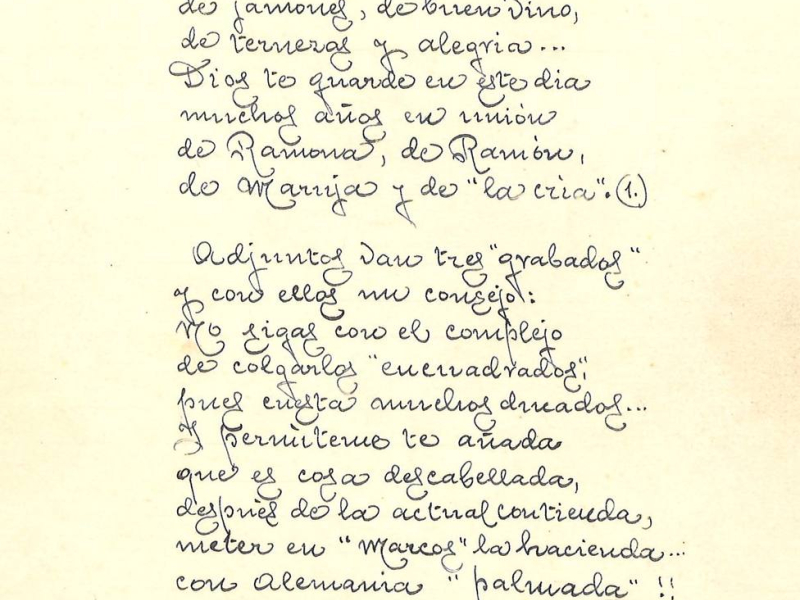 de jamones, de buen vino,
de terneras y alegria...
Dios te guarde en este dia
muchos años en unión
de Ramona, de Ramón,
de Maruja y de "la cria". (1.)
Adjuntos van tres "grabados"
y con ellos un consejo:
No sigas con el complejo
de colgarlos "encuadrados",
pues cuesta muchos ducados...
Y permiteme te añada
que es cosa descabellada,
después de la actual contienda,
meter en "Marcos" la hacienda...
con Alemania "palmada" !!